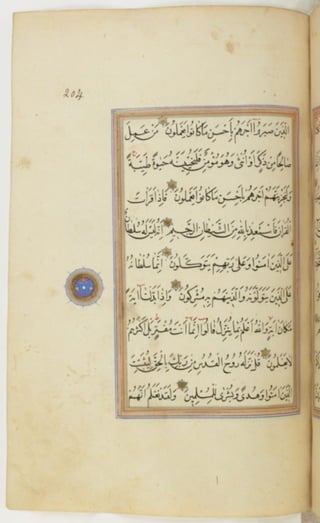 204
الَّذِينَ صَبَرُوا أَجْرَهُمْ بِأَحْسَنِ مَا كَانُوا يَعْمَلُونَ مَنْ عَمِلَ
صَالِحًا مِنْ ذَكَرٍ أَوْ أُنْثَى وَهُوَ مُؤْمِنٌ فَلَنُحْيِيَنَّهُ حَيٰوةً طَيِّبَةً
وَلَنَجْزِيَنَّهُمْ أَجْرَهُمْ بِأَحْسَنِ مَا كَانُوا يَعْمَلُونَ فَإِذَا قَرَأْتَ
الْقُرْآنَ فَاسْتَعِذْ بِاللَّهِ مِنَ الشَّيْطَانِ الرَّجِيمِ إِنَّهُ لَيْسَ لَهُ سُلْطَانٌ
عَلَى الَّذِينَ آمَنُوا وَعَلَى رَبِّهِمْ يَتَوَكَّلُونَ إِنَّمَا سُلْطَانُهُ
عَلَى الَّذِينَ يَتَوَلَّوْنَهُ وَالَّذِينَ هُمْ بِهِ مُشْرِكُونَ وَإِذَا بَدَّلْنَا آيَةً
مَكَانَ آيَةٍ وَاللَّهُ أَعْلَمُ بِمَا يُنَزِّلُ قَالُوا إِنَّمَا أَنْتَ مُفْتَرٍ بَلْ أَكْثَرُهُمْ
لَا يَعْلَمُونَ قُلْ نَزَّلَهُ رُوحُ الْقُدُسِ مِنْ رَبِّكَ بِالْحَقِّ لِيُثَبِّتَ
الَّذِينَ آمَنُوا وَهُدًى وَبُشْرَى لِلْمُسْلِمِينَ وَلَقَدْ نَعْلَمُ أَنَّهُمْ